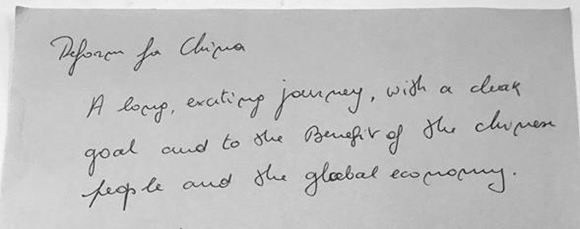 Reform for China
A long, exciting journey, with a clear
goal and to the Benefit of the chinese
people and the global economy.